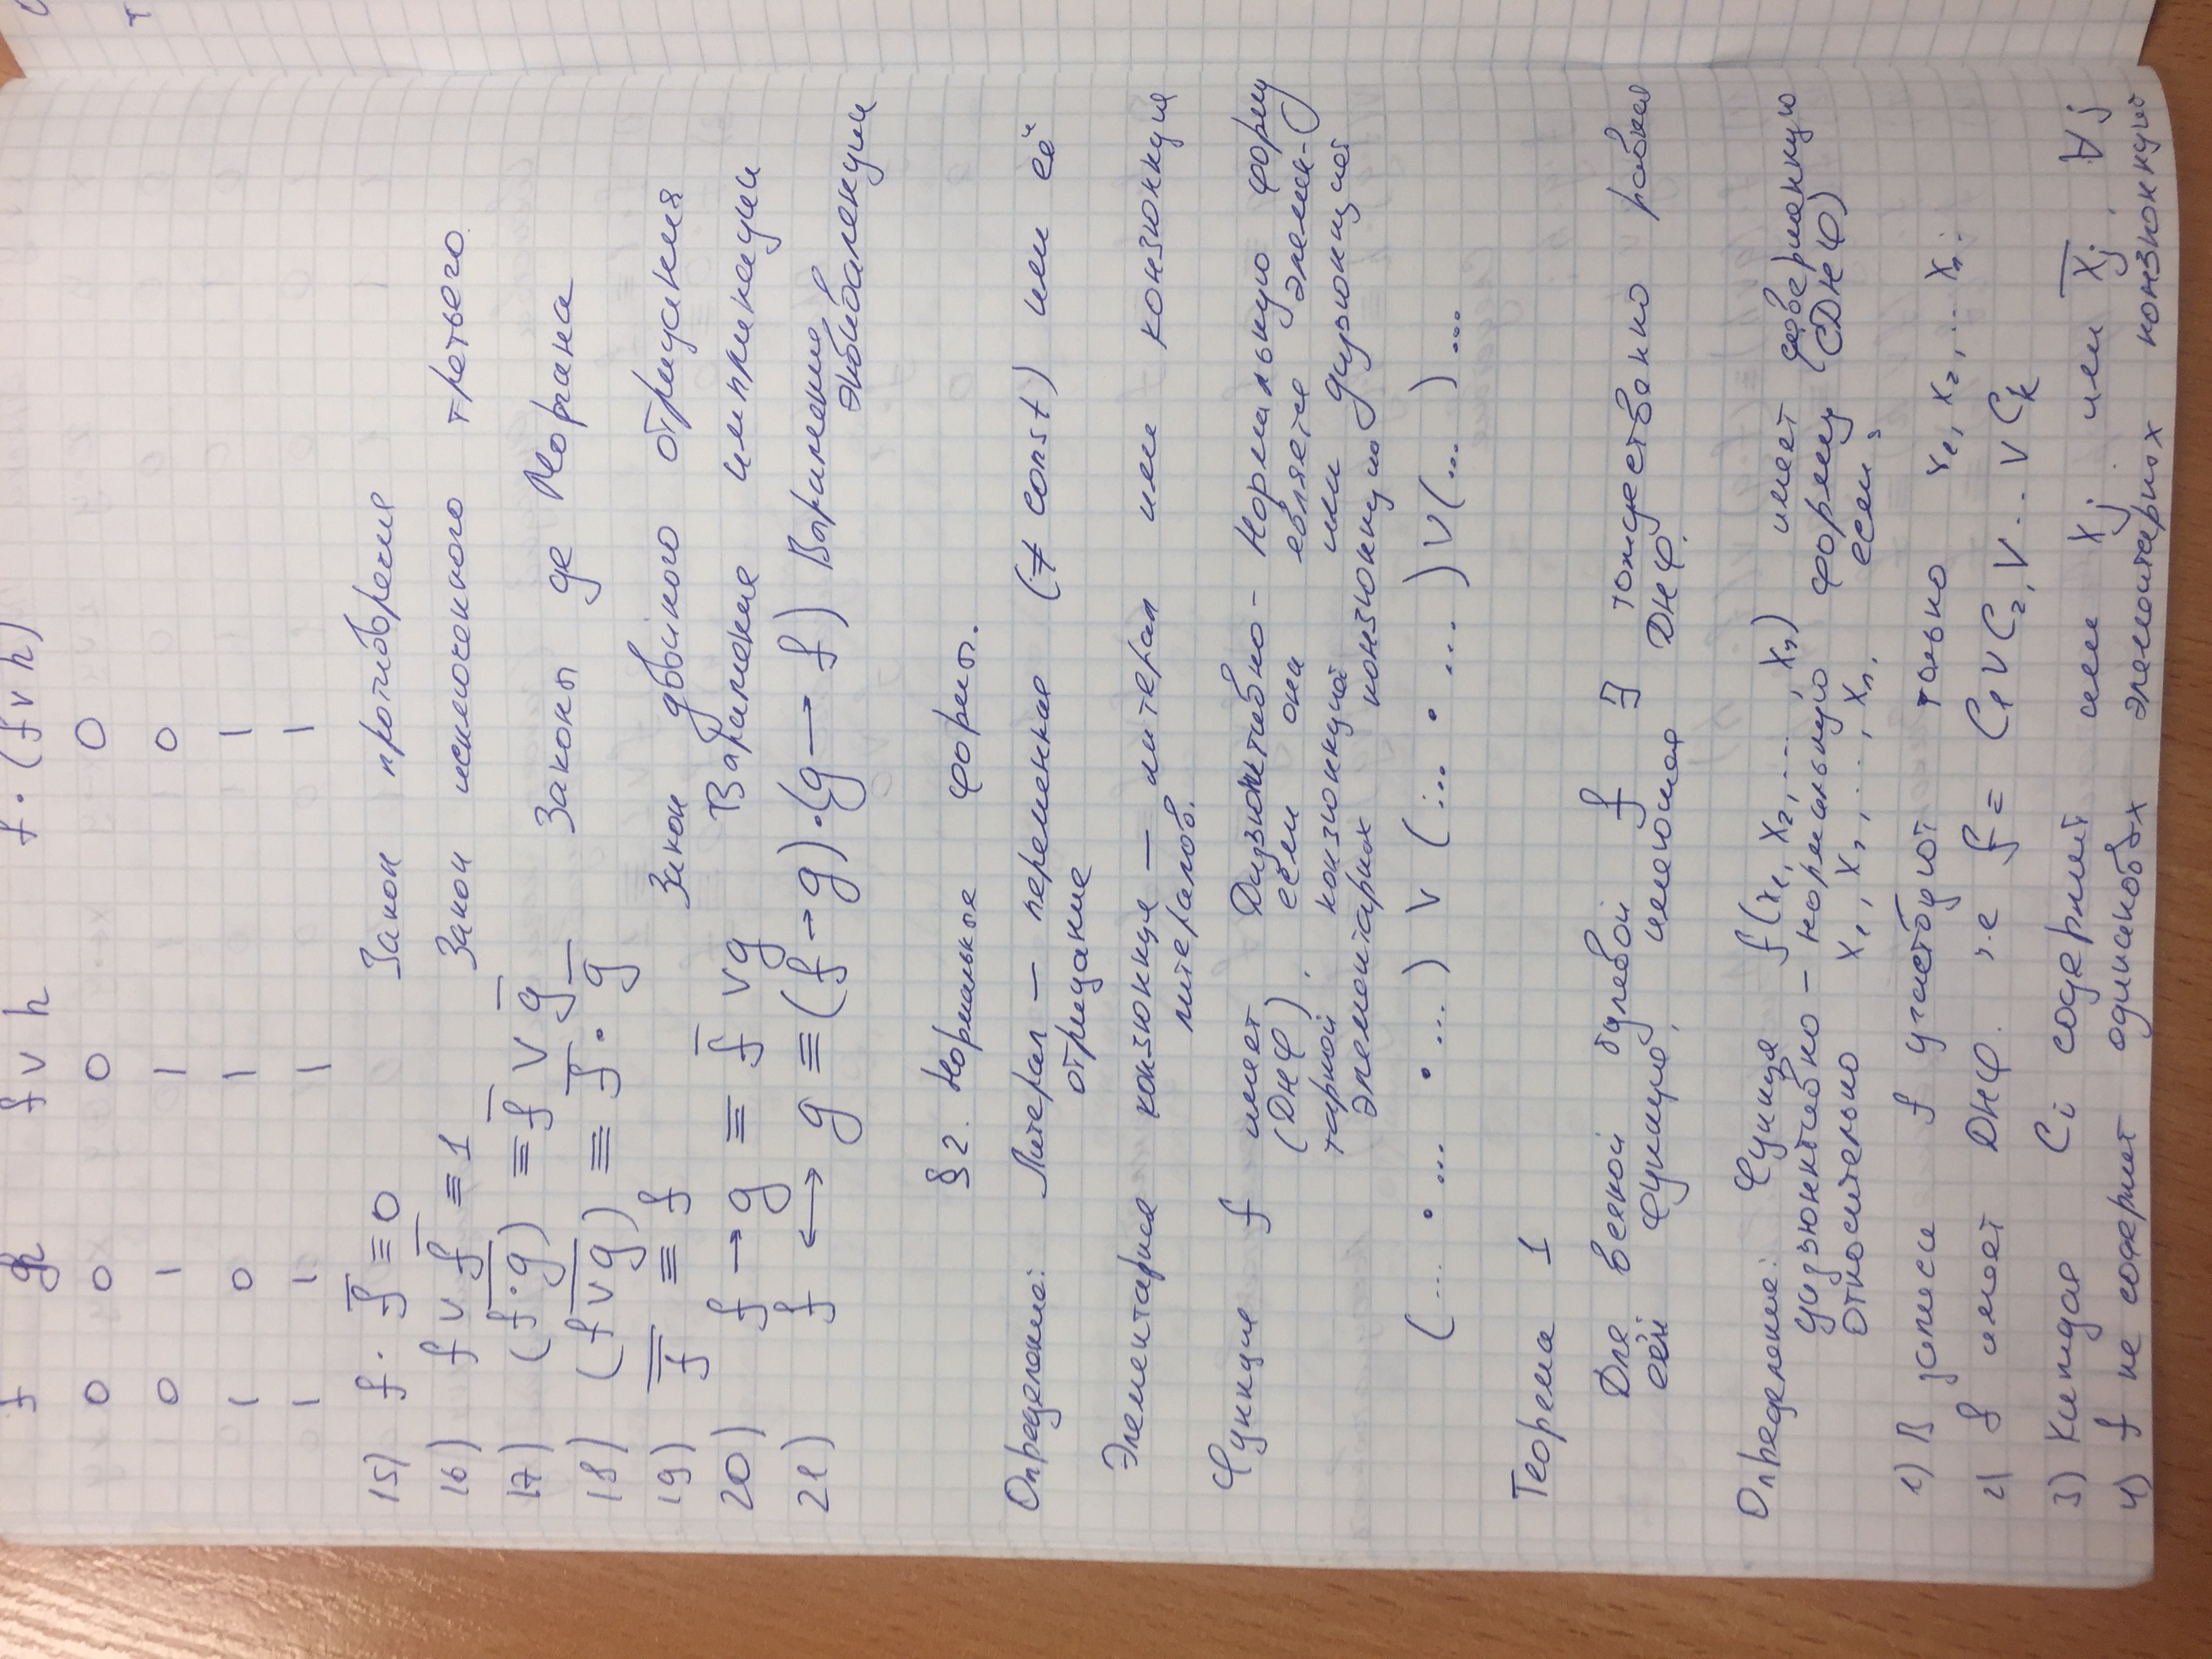 f h f ∨ h f · (f ∨ h)
0 0 0 0
0 1 1 0
1 0 1 1
1 1 1 1
15) f · f̅ ≡ 0 Закон противоречия
16) f ∨ f̅ ≡ 1 Закон исключенного третьего.
17) (f̅·̅g̅) ≡ f̅ ∨ g̅
Законы де Моргана
18) (f̅∨̅g̅) ≡ f̅ · g̅
19) f̿ ≡ f Закон двойного отрицания
20) f → g ≡ f̅ ∨ g Выражение импликации
21) f ↔ g ≡ (f → g) · (g → f) Выражение
эквиваленции
§ 2. Нормальные формы.
Определение: Литерал — переменная (≠ const) или её
отрицание
Элементарная конъюнкция — литерал или конъюнкция
литералов.
Функция f имеет Дизъюнктивно - Нормальную форму
(ДНФ), если она является элемен-
тарной конъюнкцией или дизъюнкцией
элементарных конъюнкций
(... · ... · ...) ∨ (... · ...) ∨ (... ) ...
Теорема 1
Для всякой булевой f ∃ тождественно равная
ей функция, имеющая ДНФ.
Определение: Функция f(x₁, x₂, ..., xₙ) имеет совершенную
дизъюнктивно - нормальную форму (СДНФ)
относительно x₁, x₂, ..., xₙ, если:
1) В записи f участвуют только x₁, x₂, .. xₙ.
2) f имеет ДНФ. т.е f = C₁ ∨ C₂, ∨ .. ∨ Cₖ
3) Каждая Cᵢ содержит или xⱼ или x̅ⱼ, ∀j
4) f не содержит одинаковых элементарных конъюнкций